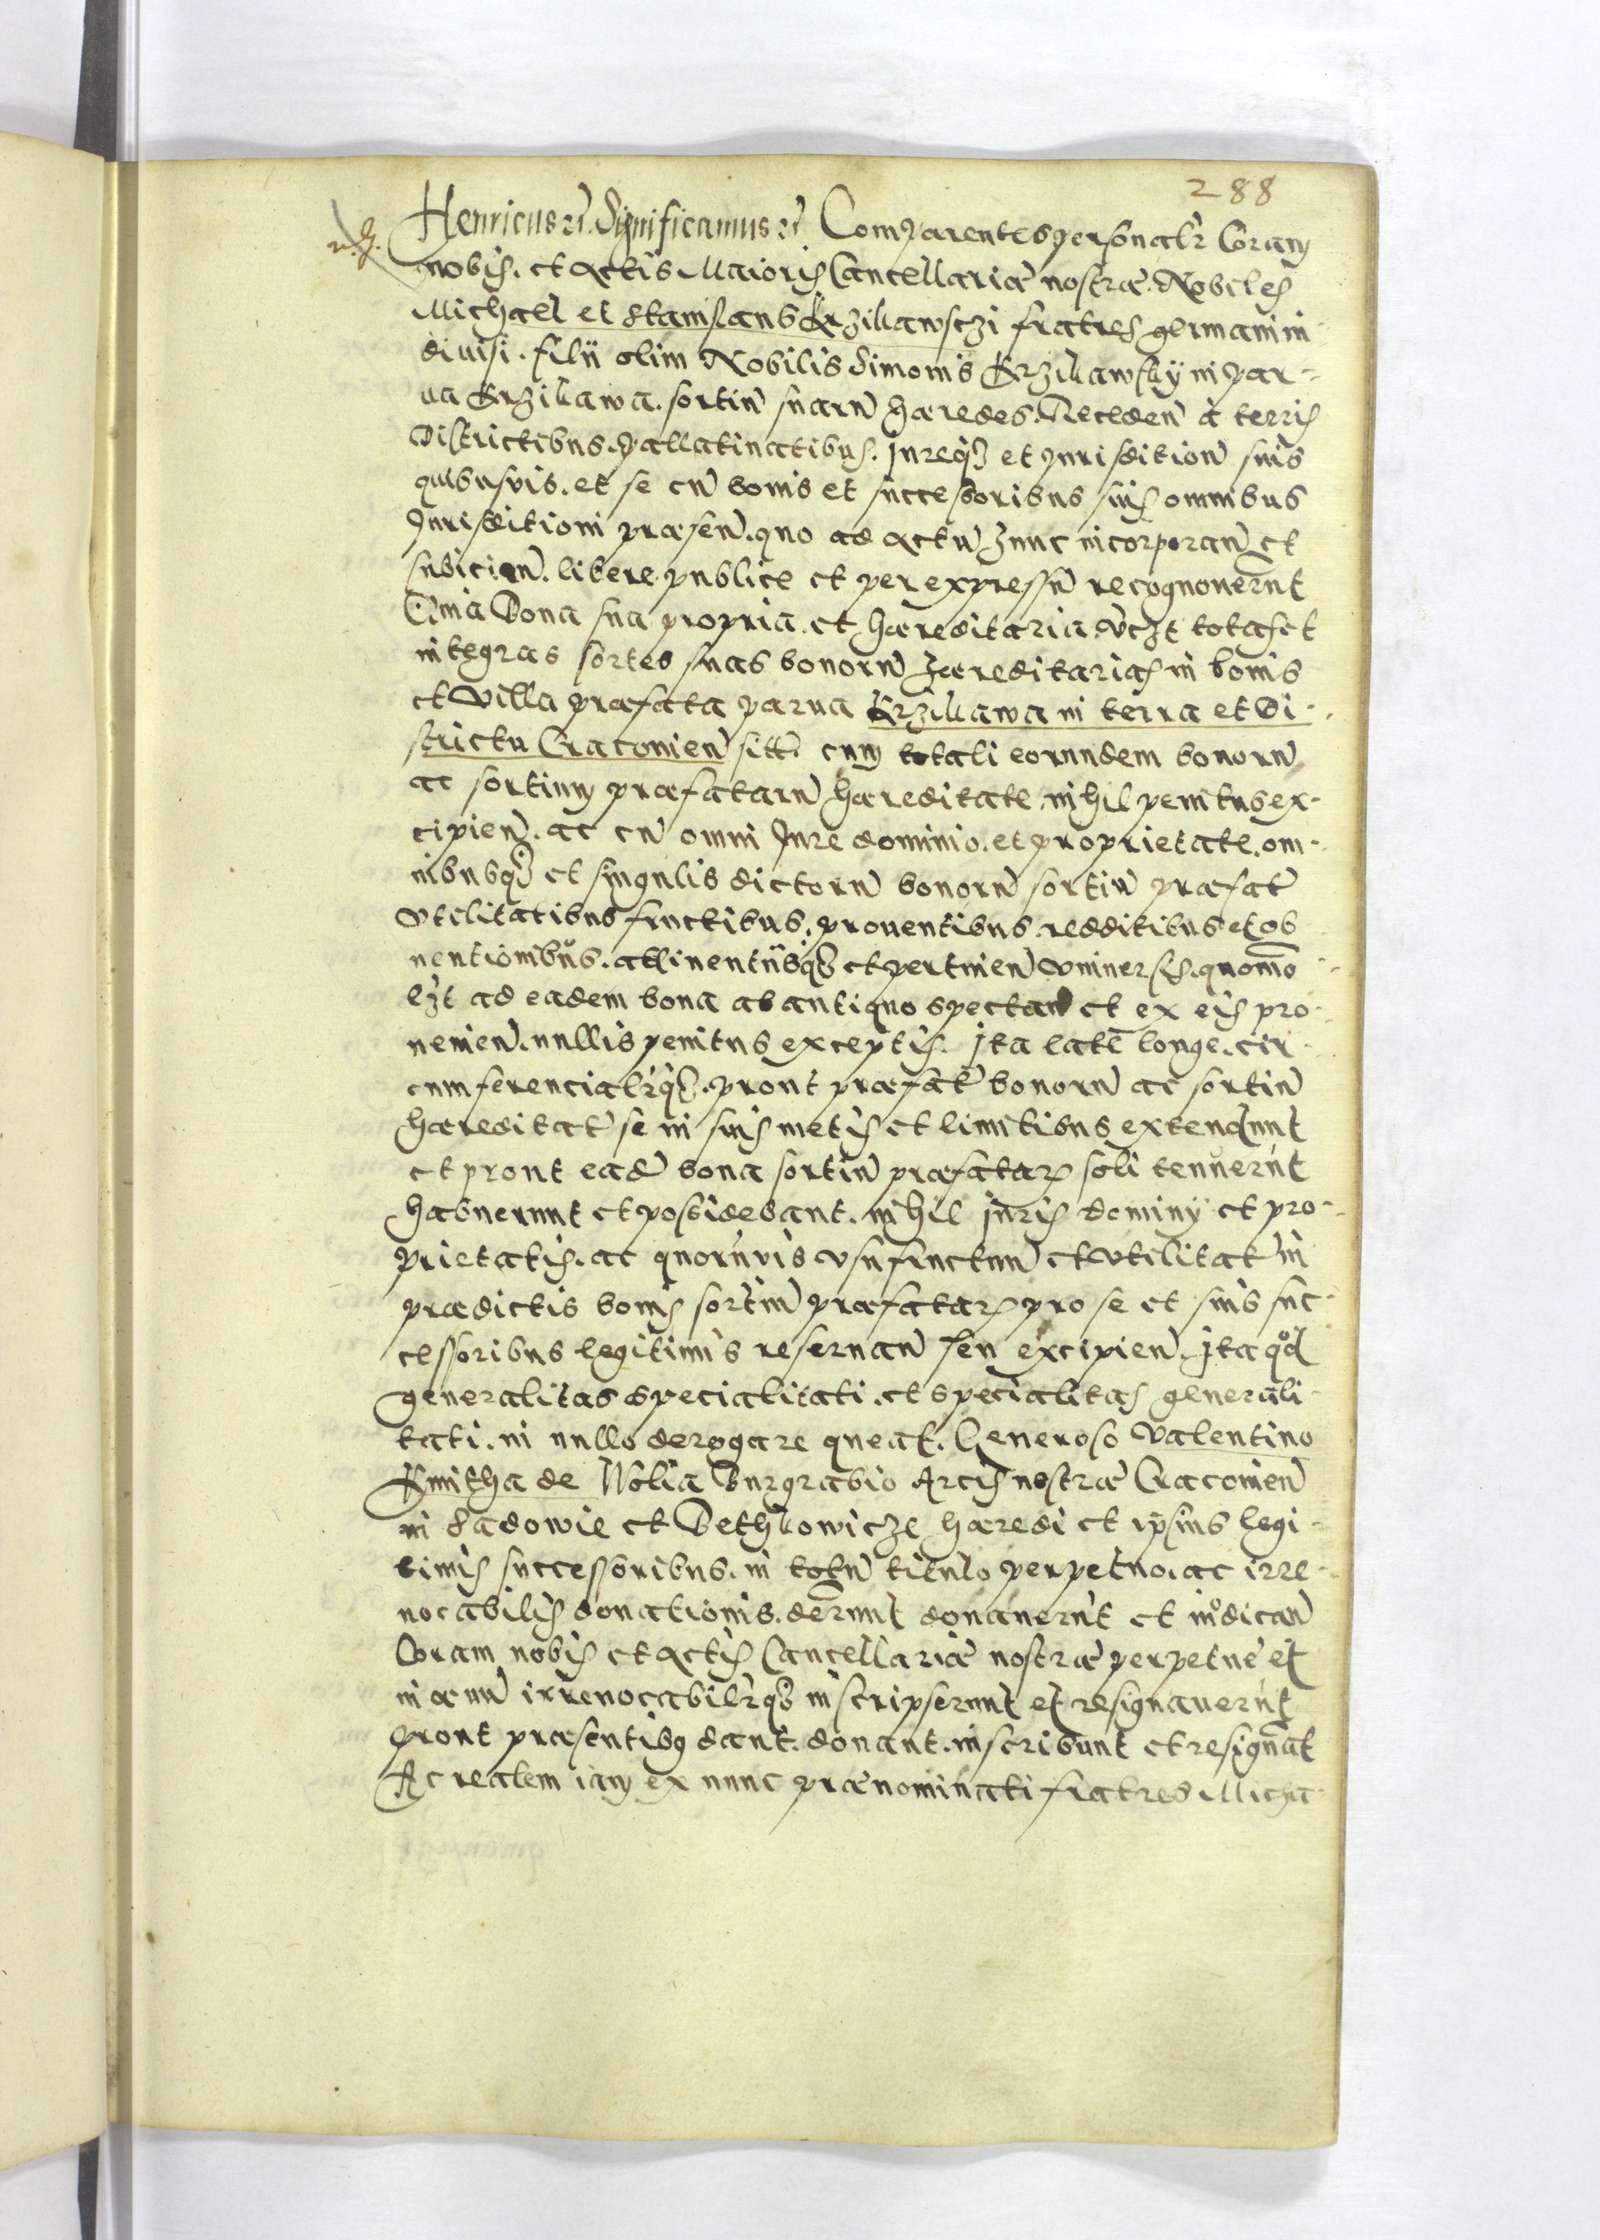 288
Henricus etc. Significamus etc. Comparentes personalr coram
nobis. et Actis Maioris Cancellariæ nostræ. Nobiles
Michael et Stanislaus Krziikawsczi fratres germani in
diuisi. filii olim Nobilis Simonis Krziikawskÿ in par-
ua Krziikawa. sortiū suarū hæredes. Receden̄ à terris
Districtibus. Pallatinatibus. Jureq3 et Jurisdition̄ suis
quibusvis. et se cū bonis et successoribus suis omnibus
Jurisditioni præsen̄. quo ad Actū hunc incorporan̄ et
subicien̄. libere publice et per expressū recognouerūt
Quia Bona sua propria. et hæreditaria. vczt totas et
integras sortes suas bonorū hæreditarias in bonis
et Villa præfata parua Krziikawa in terra et Di-
strictu Cracouien̄ sitt̄. cum totali eorundem bonorū
ac sortium præfatarū hæreditate. nihil penitus ex-
cipien̄. ac cū omni Jure dominio. et proprietate. om-
nibusq3 et singulis dictorū bonorū sortiū præfat̄
vtilitatibus fructibus. prouentibus redditibus et ob
uentionibus. attinentiisq3 et pertinen̄ vniuersis. quomō
lzt ad eadem bona ab antiquo spectan̄ et ex eis pro-
uenien̄. nullis penitus exceptis. Ita late longe. cir-
cumferencialrq3. prout præfat̄ bonorū ac sortiū
hæreditat̄ se in suis metis et limitibus extendunt
et prout ead̄ bona sortiū præfatar. soli tenuerūt
habuerunt et possidebant. nihil Juris dominÿ et pro-
prietatis. ac quorūvis vsufructuū et vtilitat̄ in
prædictis bonis sortiū præfatar. pro se et suis suc-
cessoribus legitimis reseruan̄ seu excipien̄. Ita qđ
generalitas specialitati. et specialitas generali-
tati. in nullo derogare queat. Generoso Valentino
Kmitha de Wolia Burgrabio Arcis nostræ Cracouien̄
in Sadowie et Bethkowicze hæredi et ipsius legi-
timis successoribus. in totū titulo perpetuo. ac irre-
uocabilis donationis. derunt donauerūt et in̊dican̄
Coram nobis et Actis Cancellariæ nostræ perpetue et
in æuū irreuocabilrq3 inscripserunt et resignauerūt
prout præsentibq dant. donant. inscribunt et resignāt
Ac realem iam ex nunc prænominati fratres Micha-